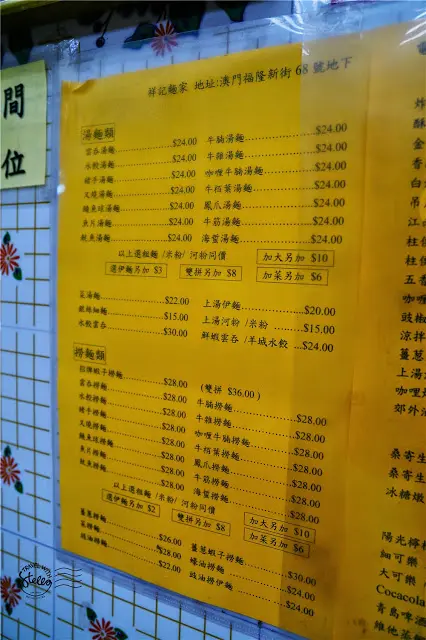 間
位
祥記麵家 地址:澳門福隆新街 68 號地下
湯麵類
雲吞湯麵 $24.00 牛腩湯麵 $24.00
水餃湯麵 $24.00 牛雜湯麵 $24.00
豬手湯麵 $24.00 咖喱牛腩湯麵 $24.00
叉燒湯麵 $24.00 牛栢葉湯麵 $24.00
鯪魚球湯麵 $24.00 鳳爪湯麵 $24.00
魚片湯麵 $24.00 牛筋湯麵 $24.00
魷魚湯麵 $24.00 海蜇湯麵 $24.00
以上選粗麵 /米粉/ 河粉同價 加大另加 $10
選伊麵另加 $3 雙拼另加 $8 加菜另加 $6
菜湯麵 $22.00 上湯伊麵 $20.00
銀絲細麵 $15.00 上湯河粉 /米粉 $15.00
水餃雲吞 $30.00 鮮蝦雲吞 /羊城水餃 $24.00
撈麵類
招牌蝦子撈麵 $28.00 (雙拼 $36.00 )
雲吞撈麵 $28.00 牛腩撈麵 $28.00
水餃撈麵 $28.00 牛雜撈麵 $28.00
豬手撈麵 $28.00 咖喱牛腩撈麵 $28.00
叉燒撈麵 $28.00 牛栢葉撈麵 $28.00
鯪魚球撈麵 $28.00 鳳爪撈麵 $28.00
魚片撈麵 $28.00 牛筋撈麵 $28.00
魷魚撈麵 $28.00 海蜇撈麵 $28.00
以上選粗麵 /米粉/ 河粉同價 加大另加 $10
選伊麵另加 $2 雙拼另加 $8 加菜另加 $6
薑蔥撈麵 $26.00 薑蔥蝦子撈麵 $30.00
菜撈麵 $28.00 蠔油撈麵 $24.00
豉油撈麵 $22.00 豉油撈伊麵 $24.00
炸
酥
金
香
白
吊
江
柱
柱
五香
咖喱
豉椒
涼拌
薑蔥
上湯
咖喱
郊外
桑寄生
桑寄生
冰糖燉
陽光檸
細可樂
大可樂
Cocacola
青島啤酒
維他
TRAVEL WITH
Stello